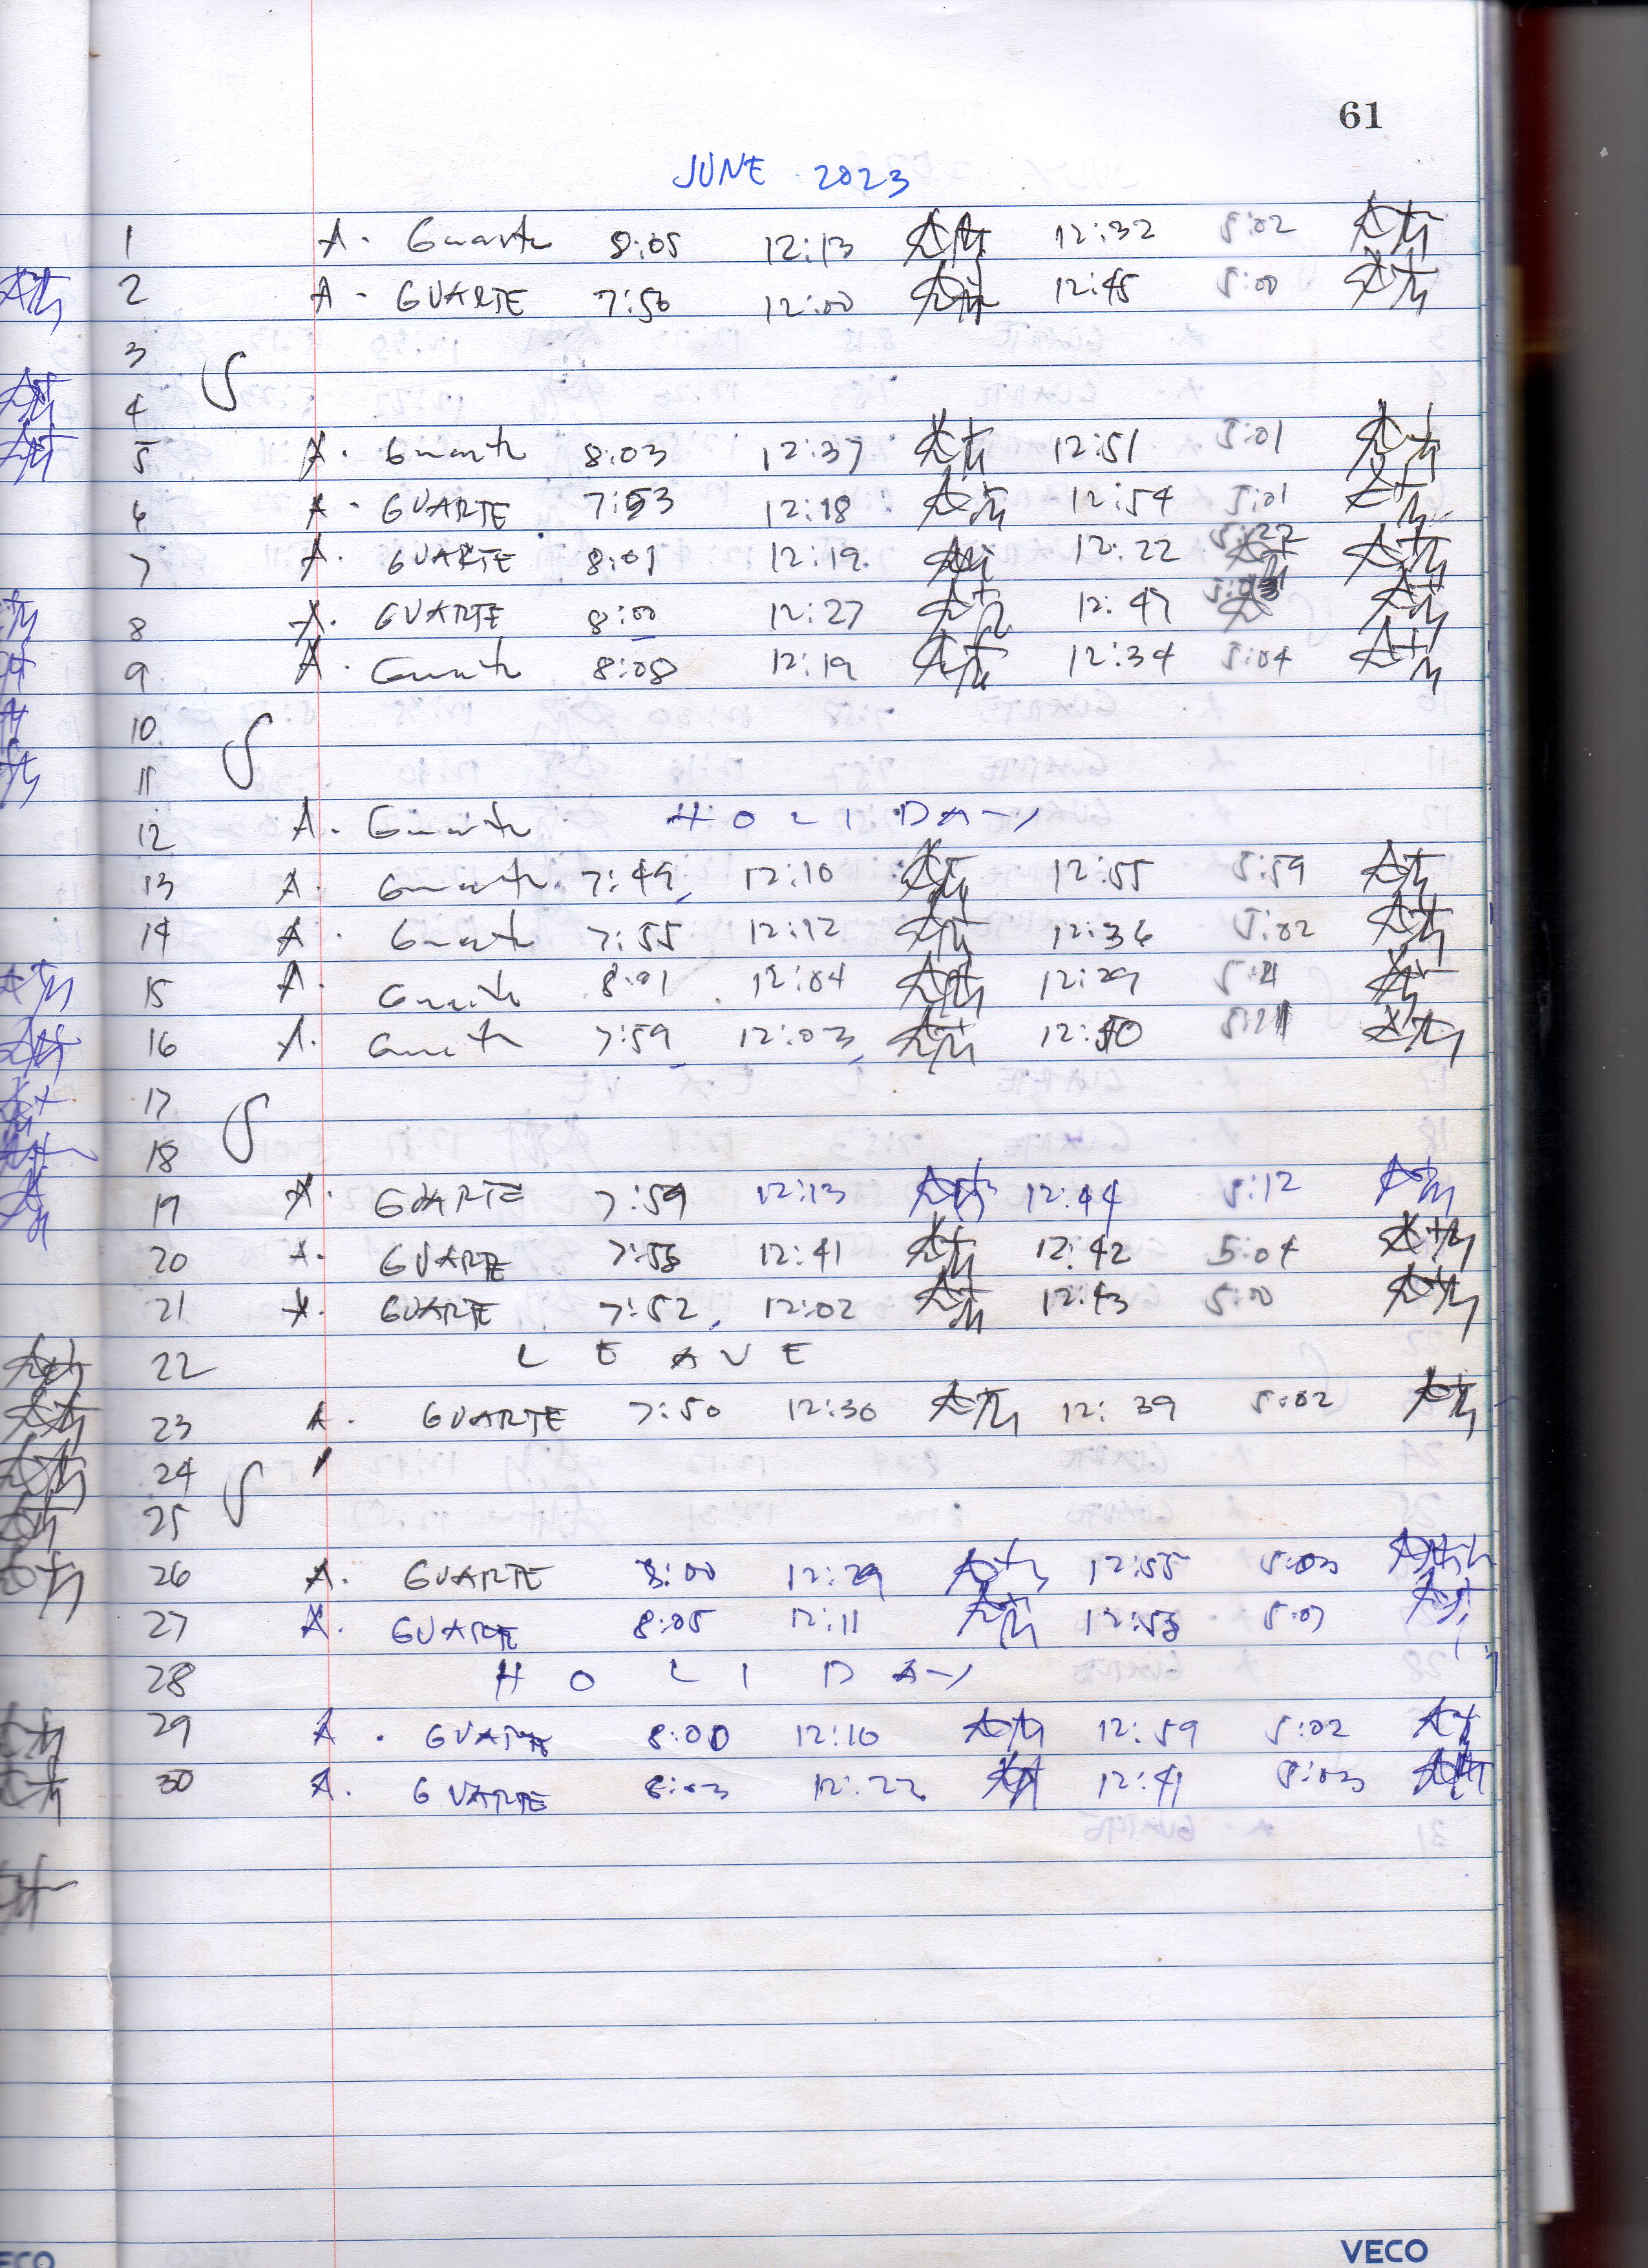 61
JUNE 2023
1 A. Guarte 8:05 12:13 12:32 5:02
2 A. GUARTE 7:50 12:00 12:45 5:00
3
4
5 A. Guarte 8:03 12:37 12:51 5:01
6 A. GUARTE 7:53 12:18 12:54 5:01
7 A. GUARTE 8:01 12:19 12:22
8 A. GUARTE 8:00 12:27 12:47
9 A. Guarte 8:08 12:19 12:34 5:04
10
11
12 A. Guarte HOLIDAY
13 A. Guarte 7:49 12:10 12:55 5:59
14 A. Guarte 7:55 12:12 12:36 5:02
15 A. Guarte 8:01 12:04 12:29
16 A. Guarte 7:59 12:03
17
18
19 A. GUARTE 7:59 12:13 12:44 5:12
20 A. GUARTE 12:41 12:42 5:04
21 A. GUARTE 7:52 12:02 12:43 5:00
22 LEAVE
23 A. GUARTE 7:50 12:30 12:39 5:02
24
25
26 A. GUARTE 8:00 12:29 12:55 5:03
27 A. GUARTE 8:05 12:11
28 HOLIDAY
29 A. GUARTE 8:00 12:10 12:59 5:02
30 A. GUARTE 8:03 12:22 12:41 5:03
VECO